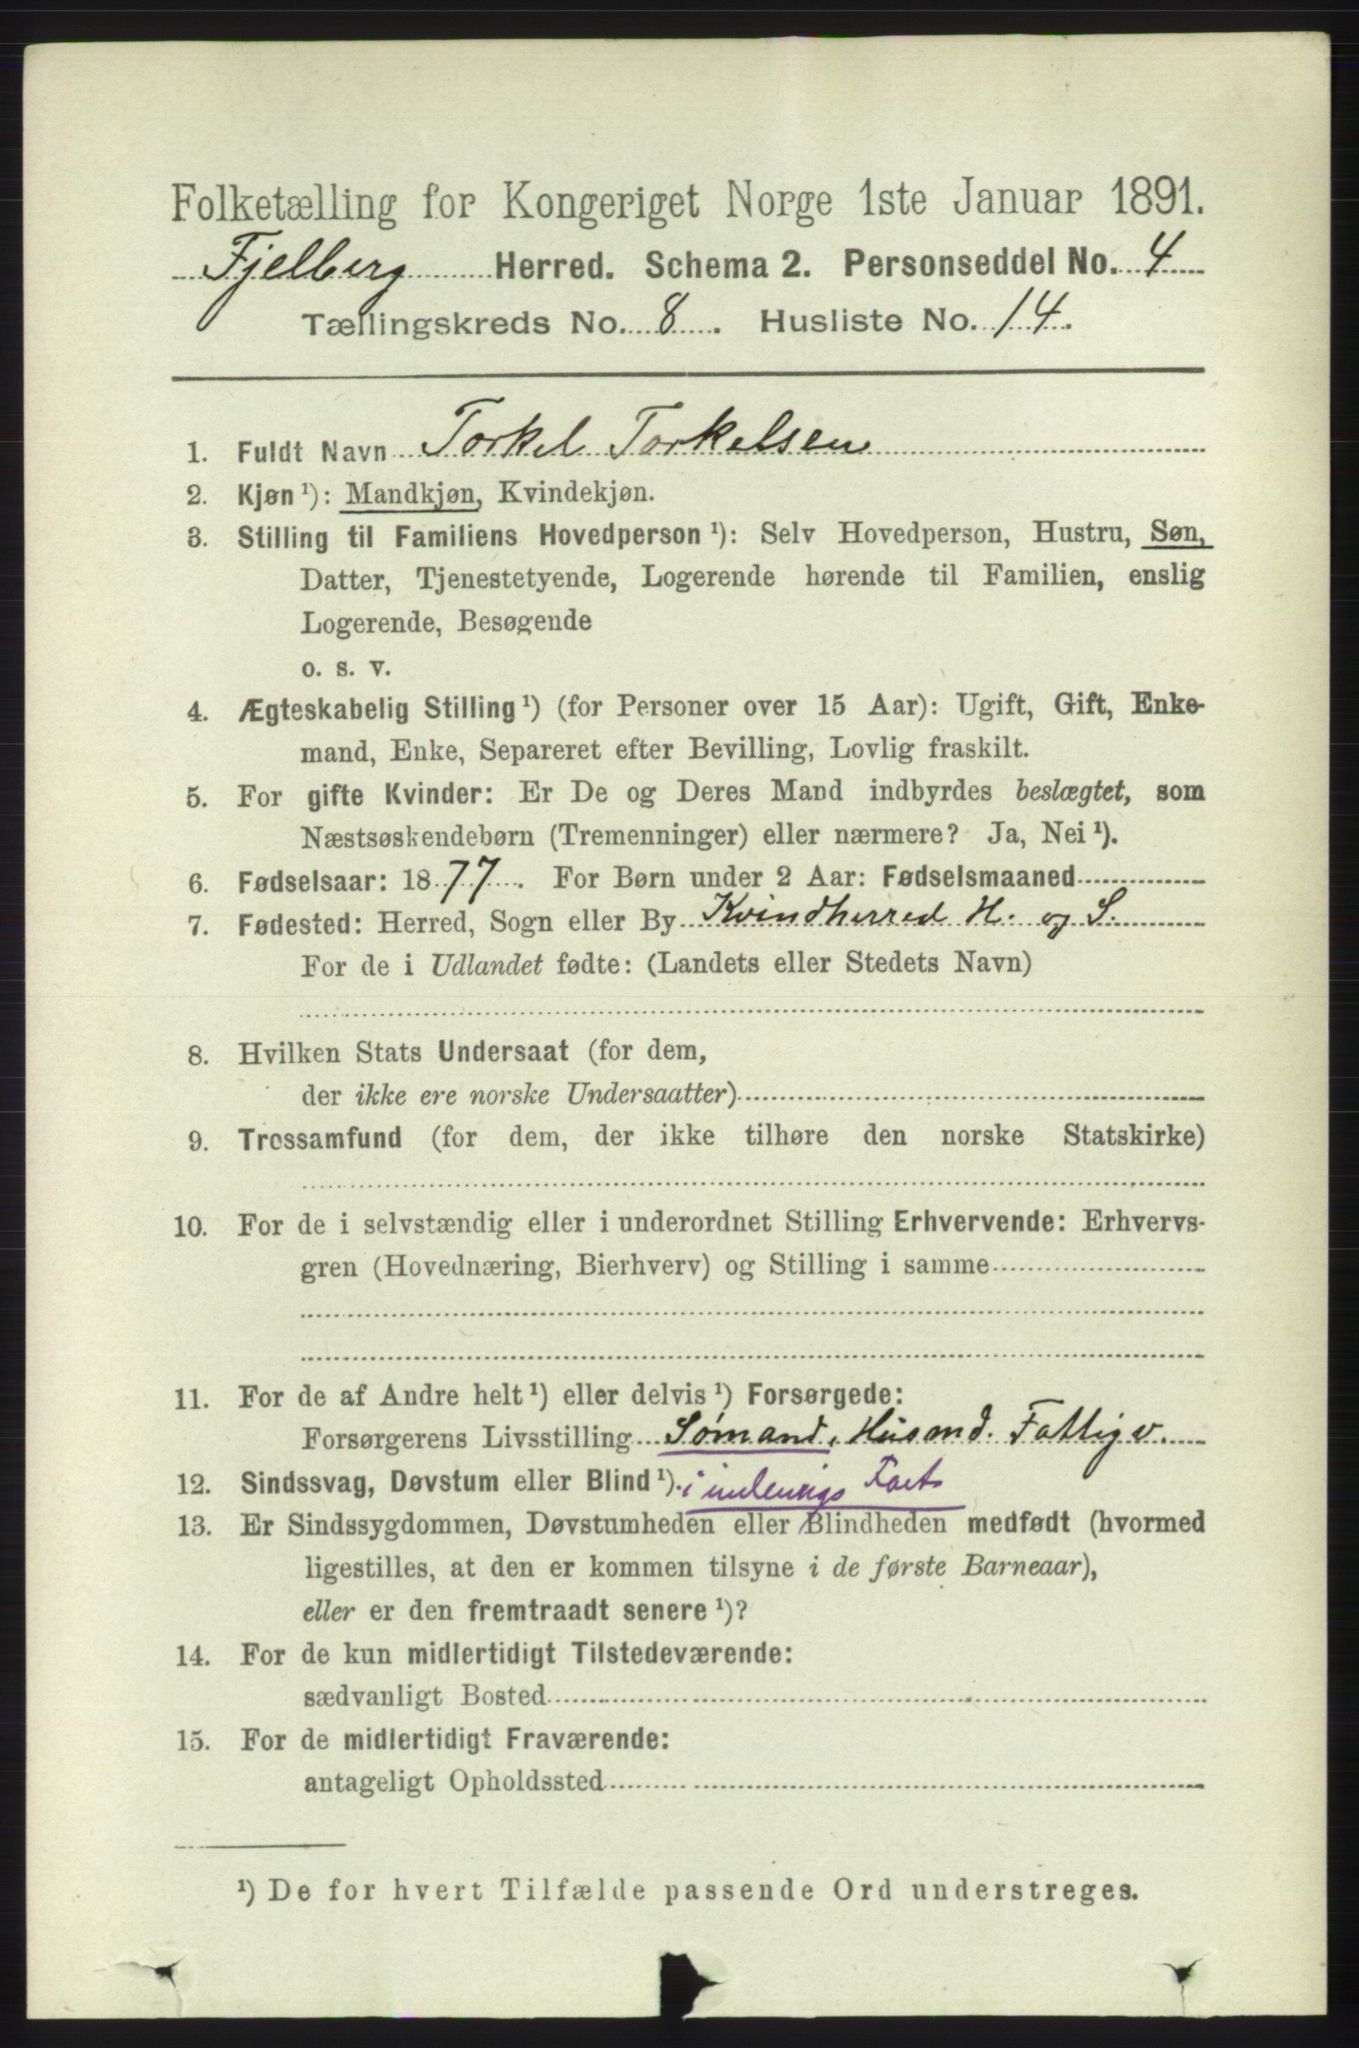 Folketælling for Kongeriget Norge 1ste Januar 1891.
Fjelberg Herred. Schema 2. Personseddel No. 4
Tællingskreds No. 8. Husliste No. 14.
1. Fuldt Navn Torkel Torkelsen
2. Kjøn ¹): Mandkjøn, Kvindekjøn.
3. Stilling til Familiens Hovedperson ¹): Selv Hovedperson, Hustru, Søn,
Datter, Tjenestetyende, Logerende hørende til Familien, enslig
Logerende, Besøgende
o. s. v.
4. Ægteskabelig Stilling ¹) (for Personer over 15 Aar): Ugift, Gift, Enke-
mand, Enke, Separeret efter Bevilling, Lovlig fraskilt.
5. For gifte Kvinder: Er De og Deres Mand indbyrdes beslægtet, som
Næstsøskendebørn (Tremenninger) eller nærmere? Ja, Nei ¹).
6. Fødselsaar: 1877. For Børn under 2 Aar: Fødselsmaaned
7. Fødested: Herred, Sogn eller By Kvindherred H. og S.
For de i Udlandet fødte: (Landets eller Stedets Navn)
8. Hvilken Stats Undersaat (for dem,
der ikke ere norske Undersaatter)
9. Trossamfund (for dem, der ikke tilhøre den norske Statskirke)
10. For de i selvstændig eller i underordnet Stilling Erhvervende: Erhvervs-
gren (Hovednæring, Bierhverv) og Stilling i samme
11. For de af Andre helt ¹) eller delvis ¹) Forsørgede:
Forsørgerens Livsstilling Sømand, Husmd. Fattigv.
12. Sindssvag, Døvstum eller Blind ¹). i
13. Er Sindssygdommen, Døvstumheden eller Blindheden medfødt (hvormed
ligestilles, at den er kommen tilsyne i de første Barneaar),
eller er den fremtraadt senere ¹)?
14. For de kun midlertidigt Tilstedeværende:
sædvanligt Bosted
15. For de midlertidigt Fraværende:
antageligt Opholdssted
¹) De for hvert Tilfælde passende Ord understreges.